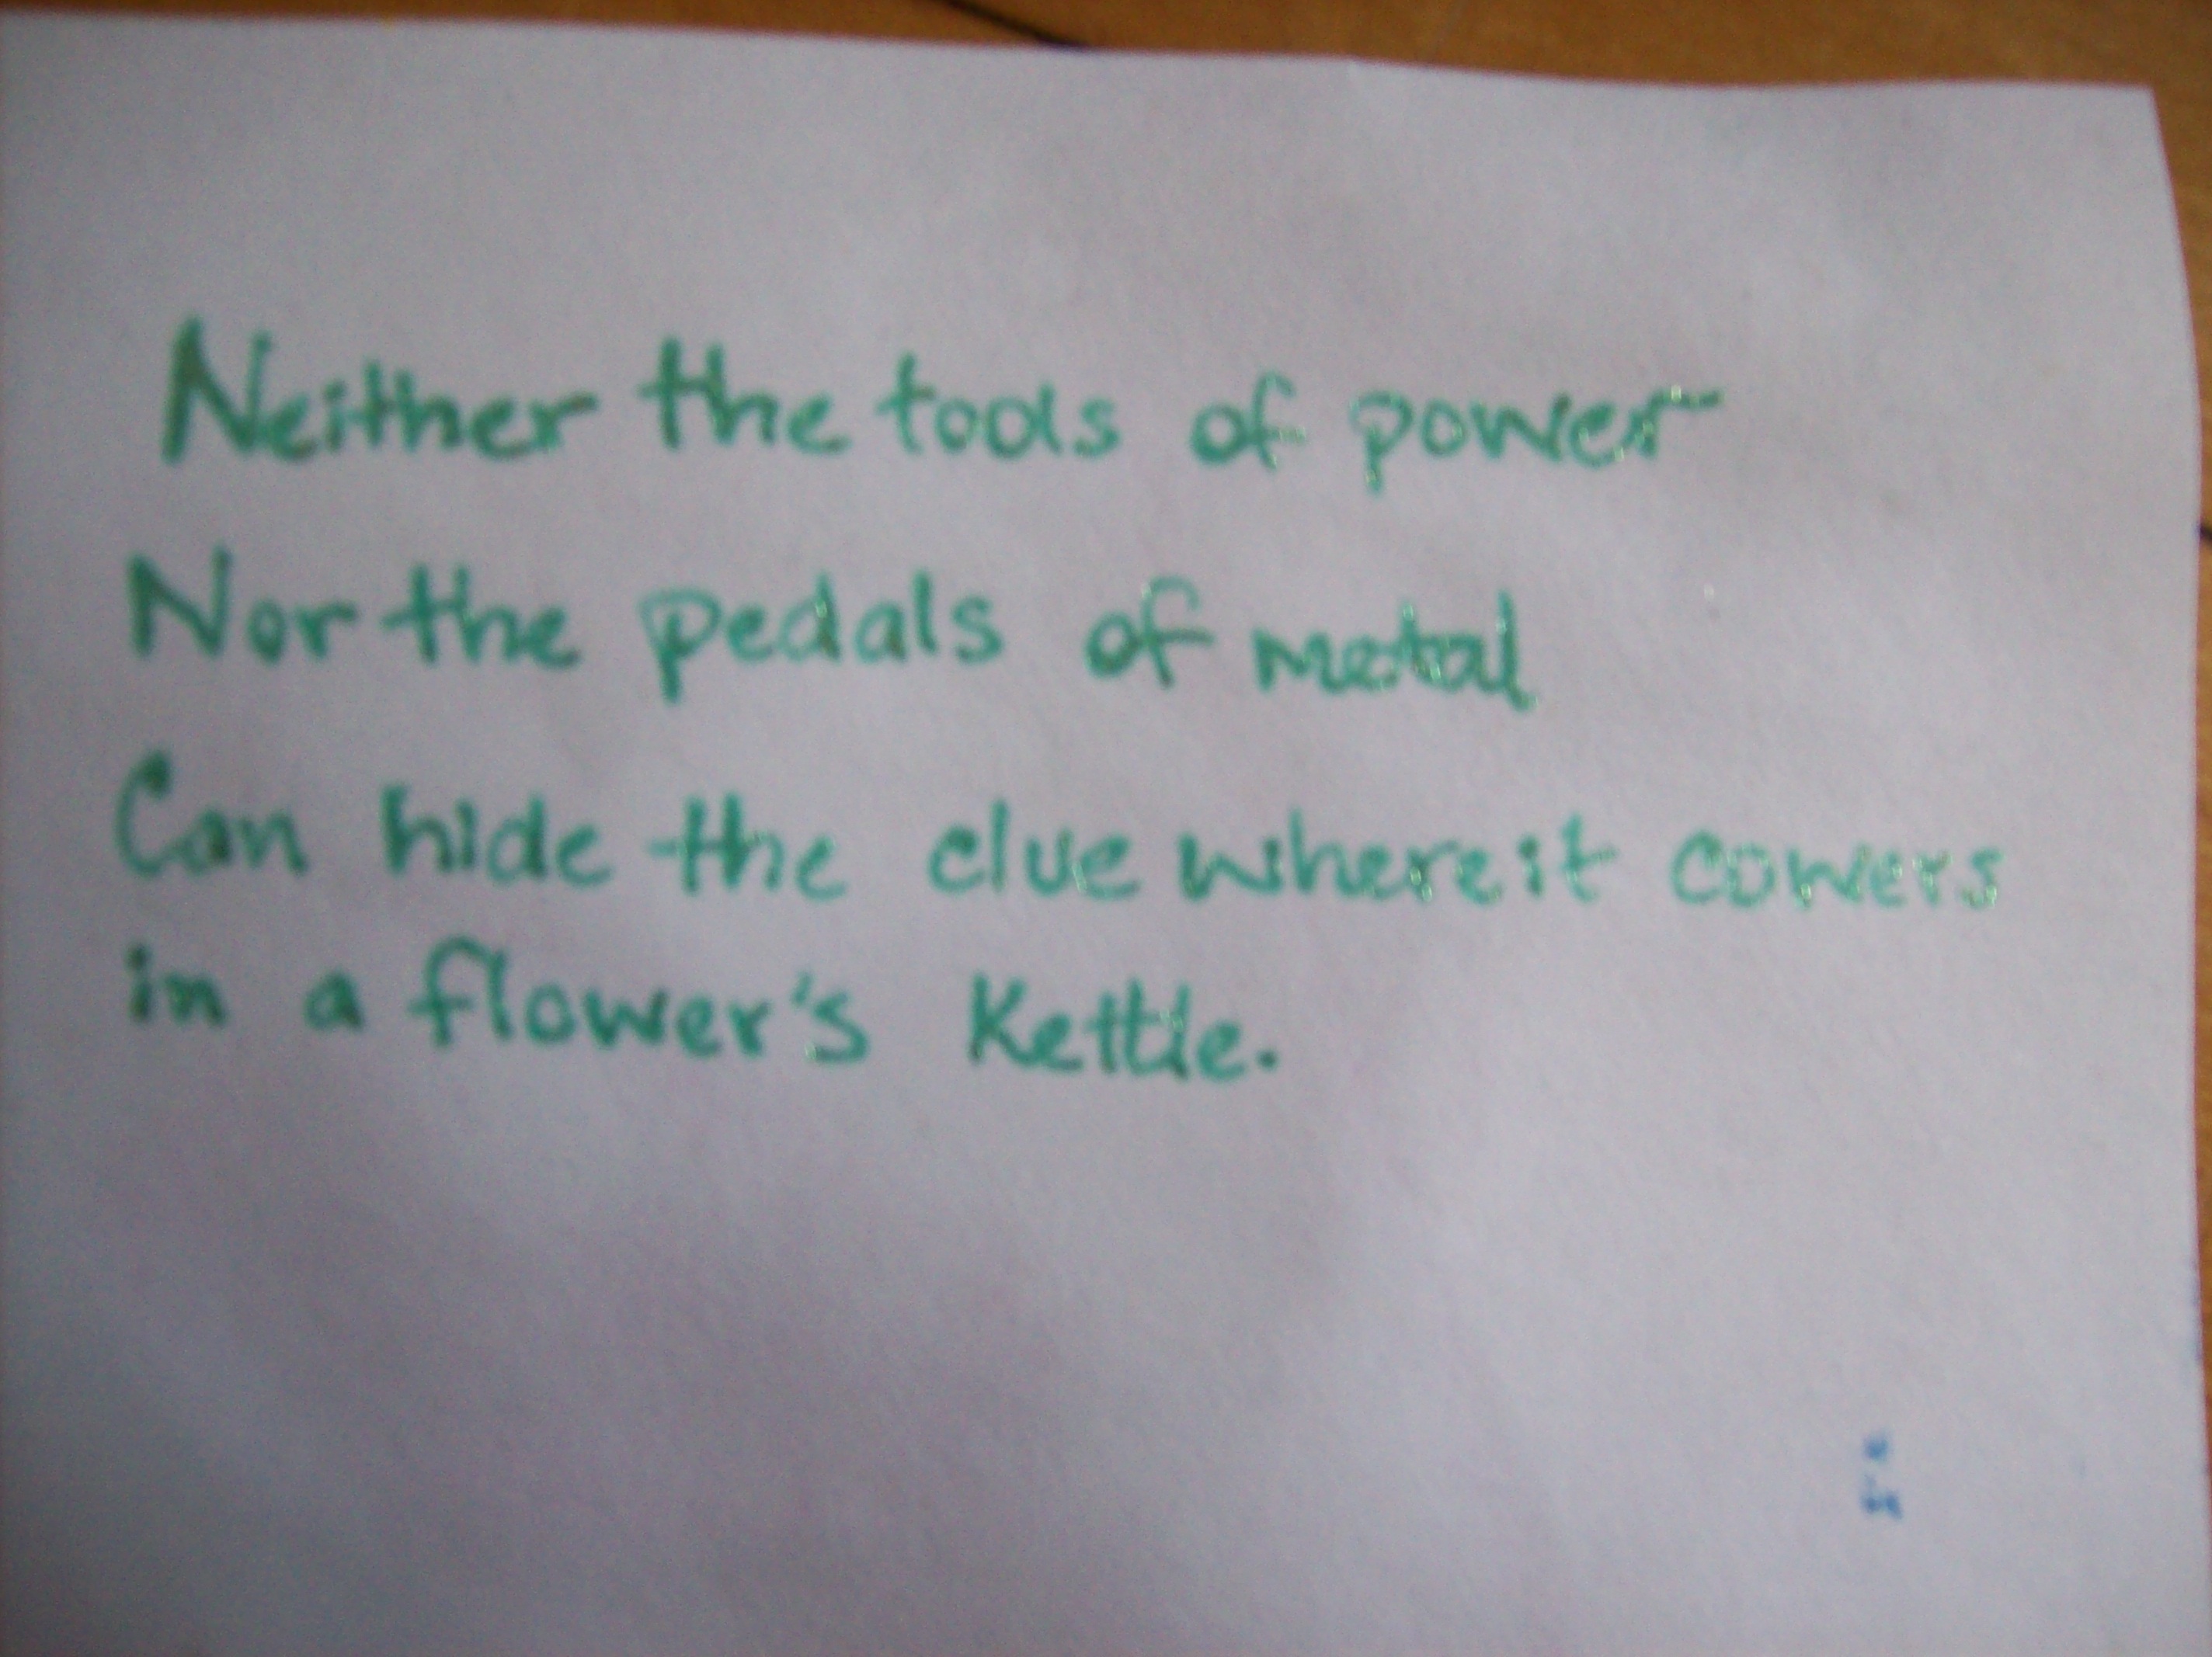 Neither the tools of power
Nor the pedals of metal
Can hide the clue where it cowers
in a flower's Kettle.